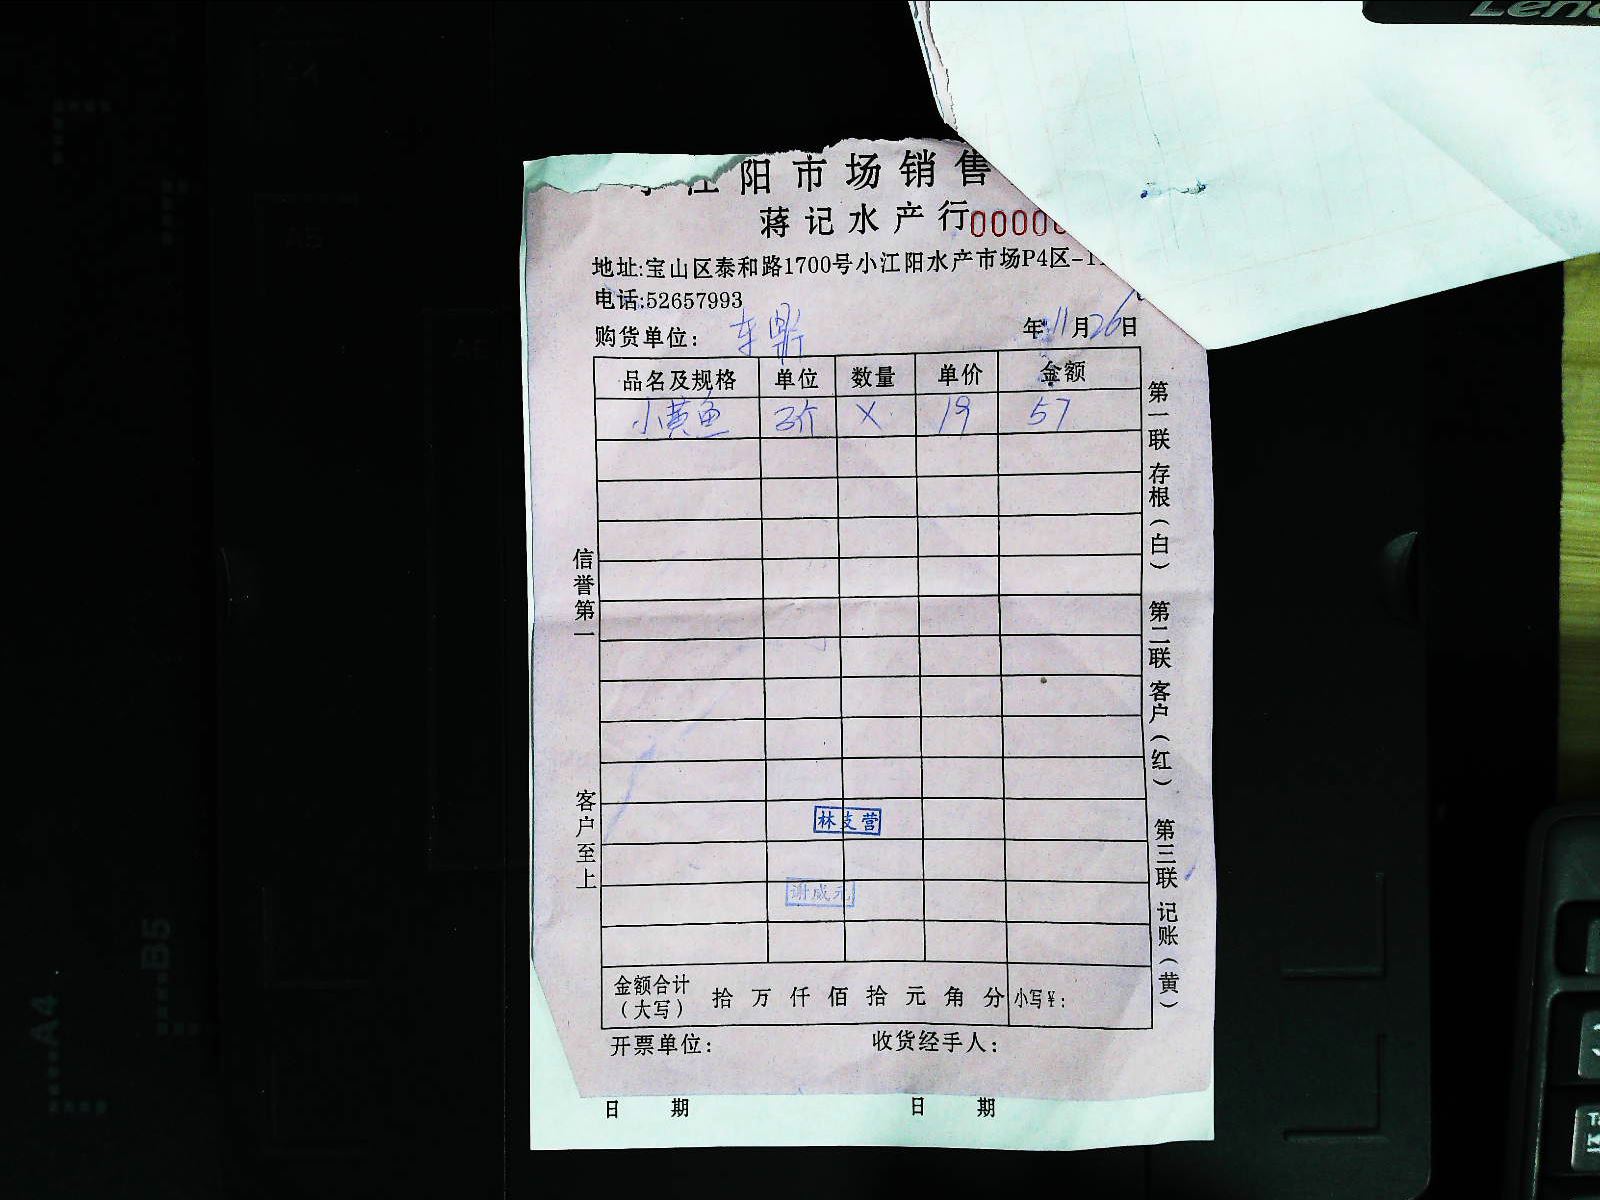 江阳市场销售
蒋记水产行 0000
地址:宝山区泰和路1700号小江阳水产市场P4区-1
电话:52657993
购货单位: 车
年 11月26日
品名及规格 单位 数量 单价 金额
小黄鱼 3个 X 19 57
信誉第一
客户至上
第一联 存根(白)
第二联 客户(红)
第三联 记账(黄)
林支营
谢成元
金额合计(大写) 拾 万 仟 佰 拾 元 角 分 小写¥:
开票单位: 收货经手人:
日 期 日 期
A4
B5
A5
Leno